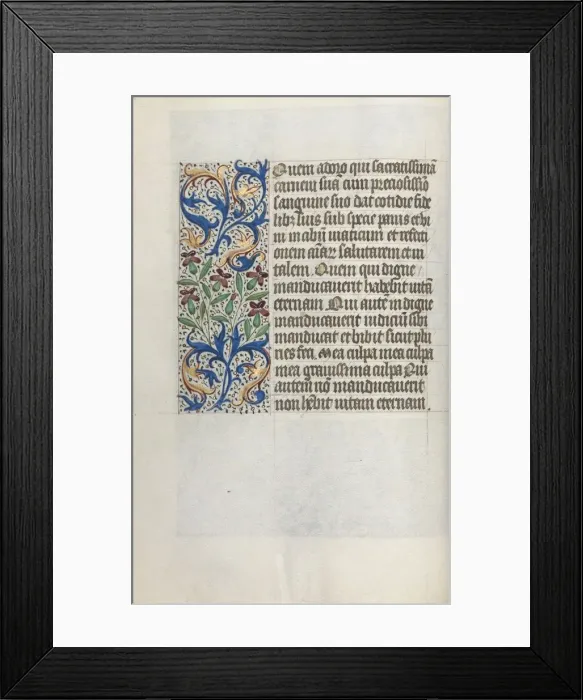 Quem adoro qui sacratissimā
carnem suā cum preciosissīo
sanguine suo dat cotidie fide
libꝫ suis sub specie panis et vi
ni in abūm viaticum et refecti
onem aīaꝝ salutarem et ui
talem. Quem qui digne
manducaverit habebit uitā
eternam Qui autē indigne
manducauerit iudiciū sibi
manducat et bibit sicut plu
res fca. mea culpa mea culpa
mea grauissima culpa Qui
autem nō manducauerit
non hēbit uitam eternam.